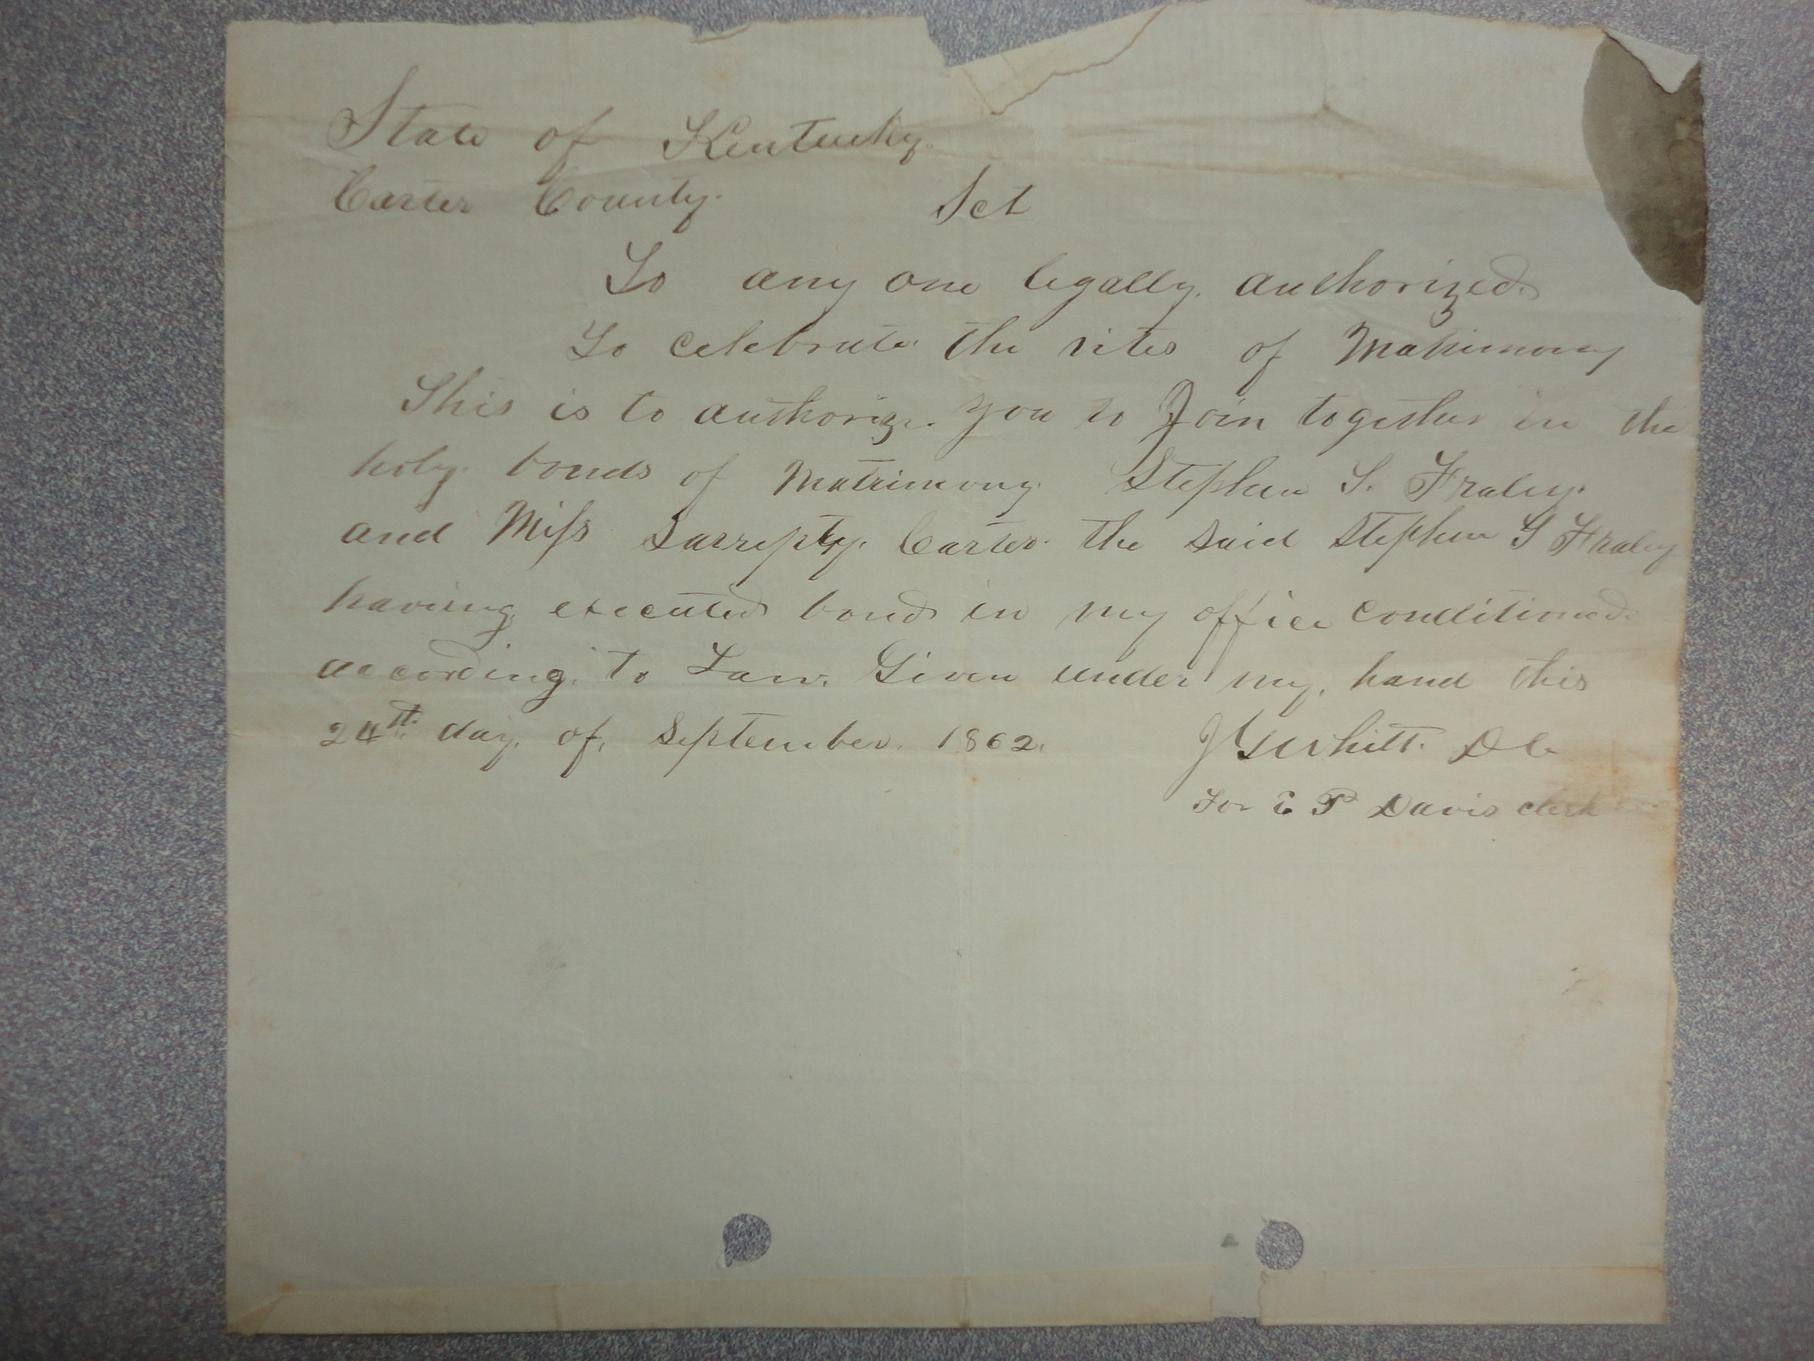 State of Kentucky
Carter County. Sct
To any one legally authorized
To celebrate the rites of Matrimony
This is to authorize you to Join together in the
holy bonds of Matrimony Stephen S. Fraley
and Miss Sarrepty Carter the said Stephen S Fraley
having executed bond in my office conditioned
according to Law. Given under my hand this
24th day of September 1862. Whitt D C
For E P Davis clerk